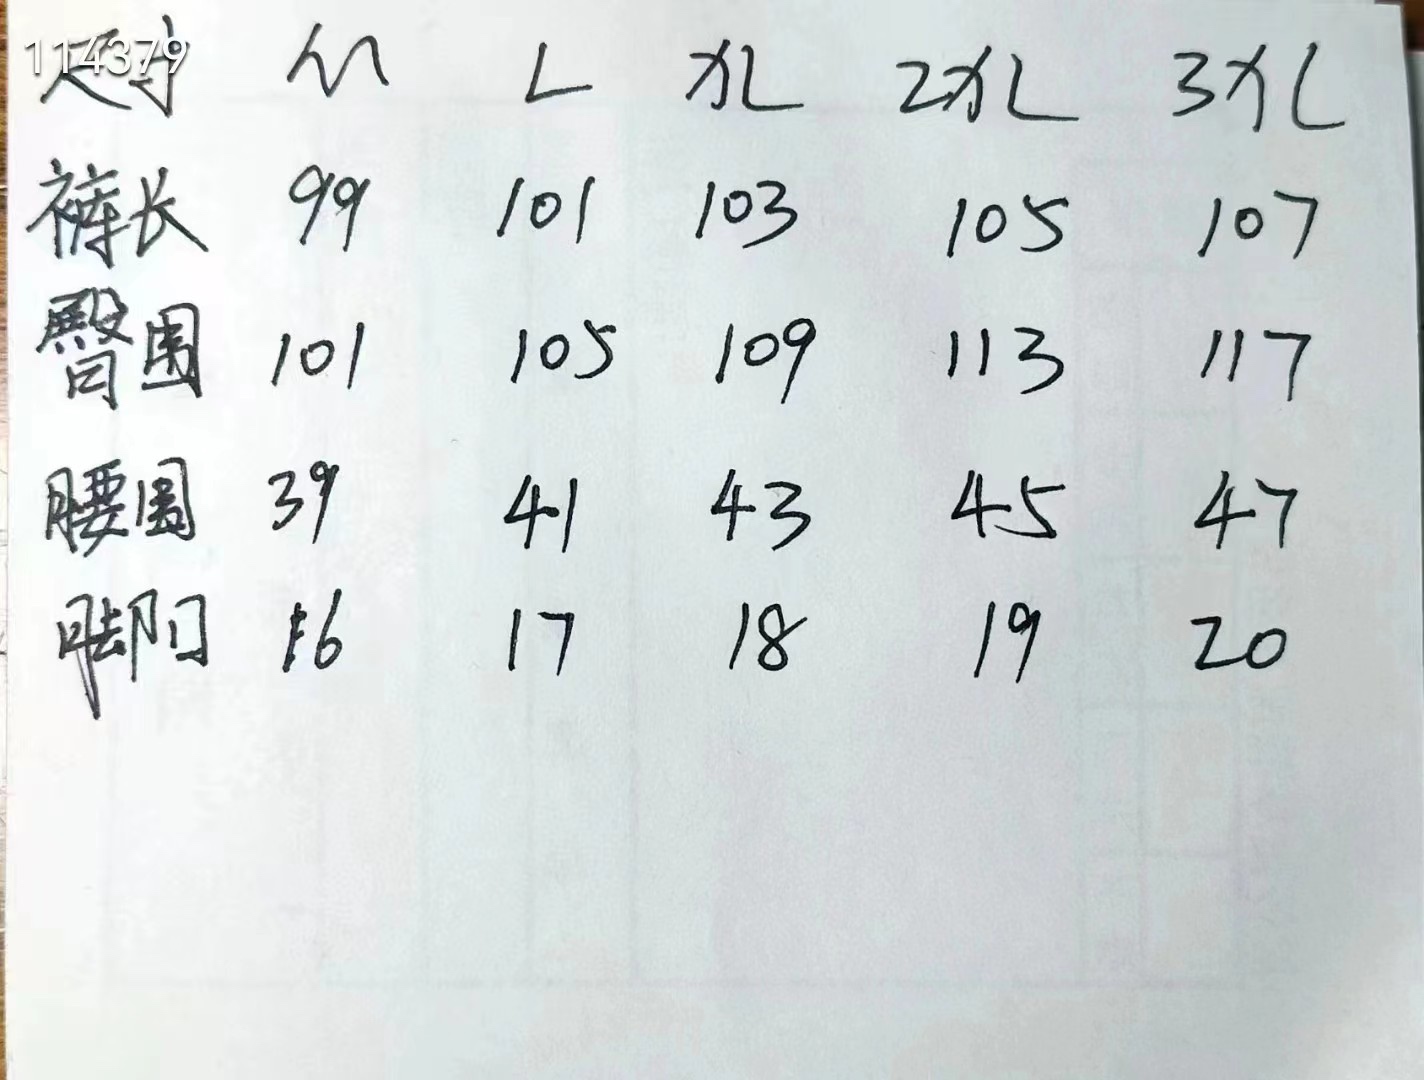 114379
尺寸 M L XL 2XL 3XL
裤长 99 101 103 105 107
臀围 101 105 109 113 117
腰围 39 41 43 45 47
脚口 16 17 18 19 20